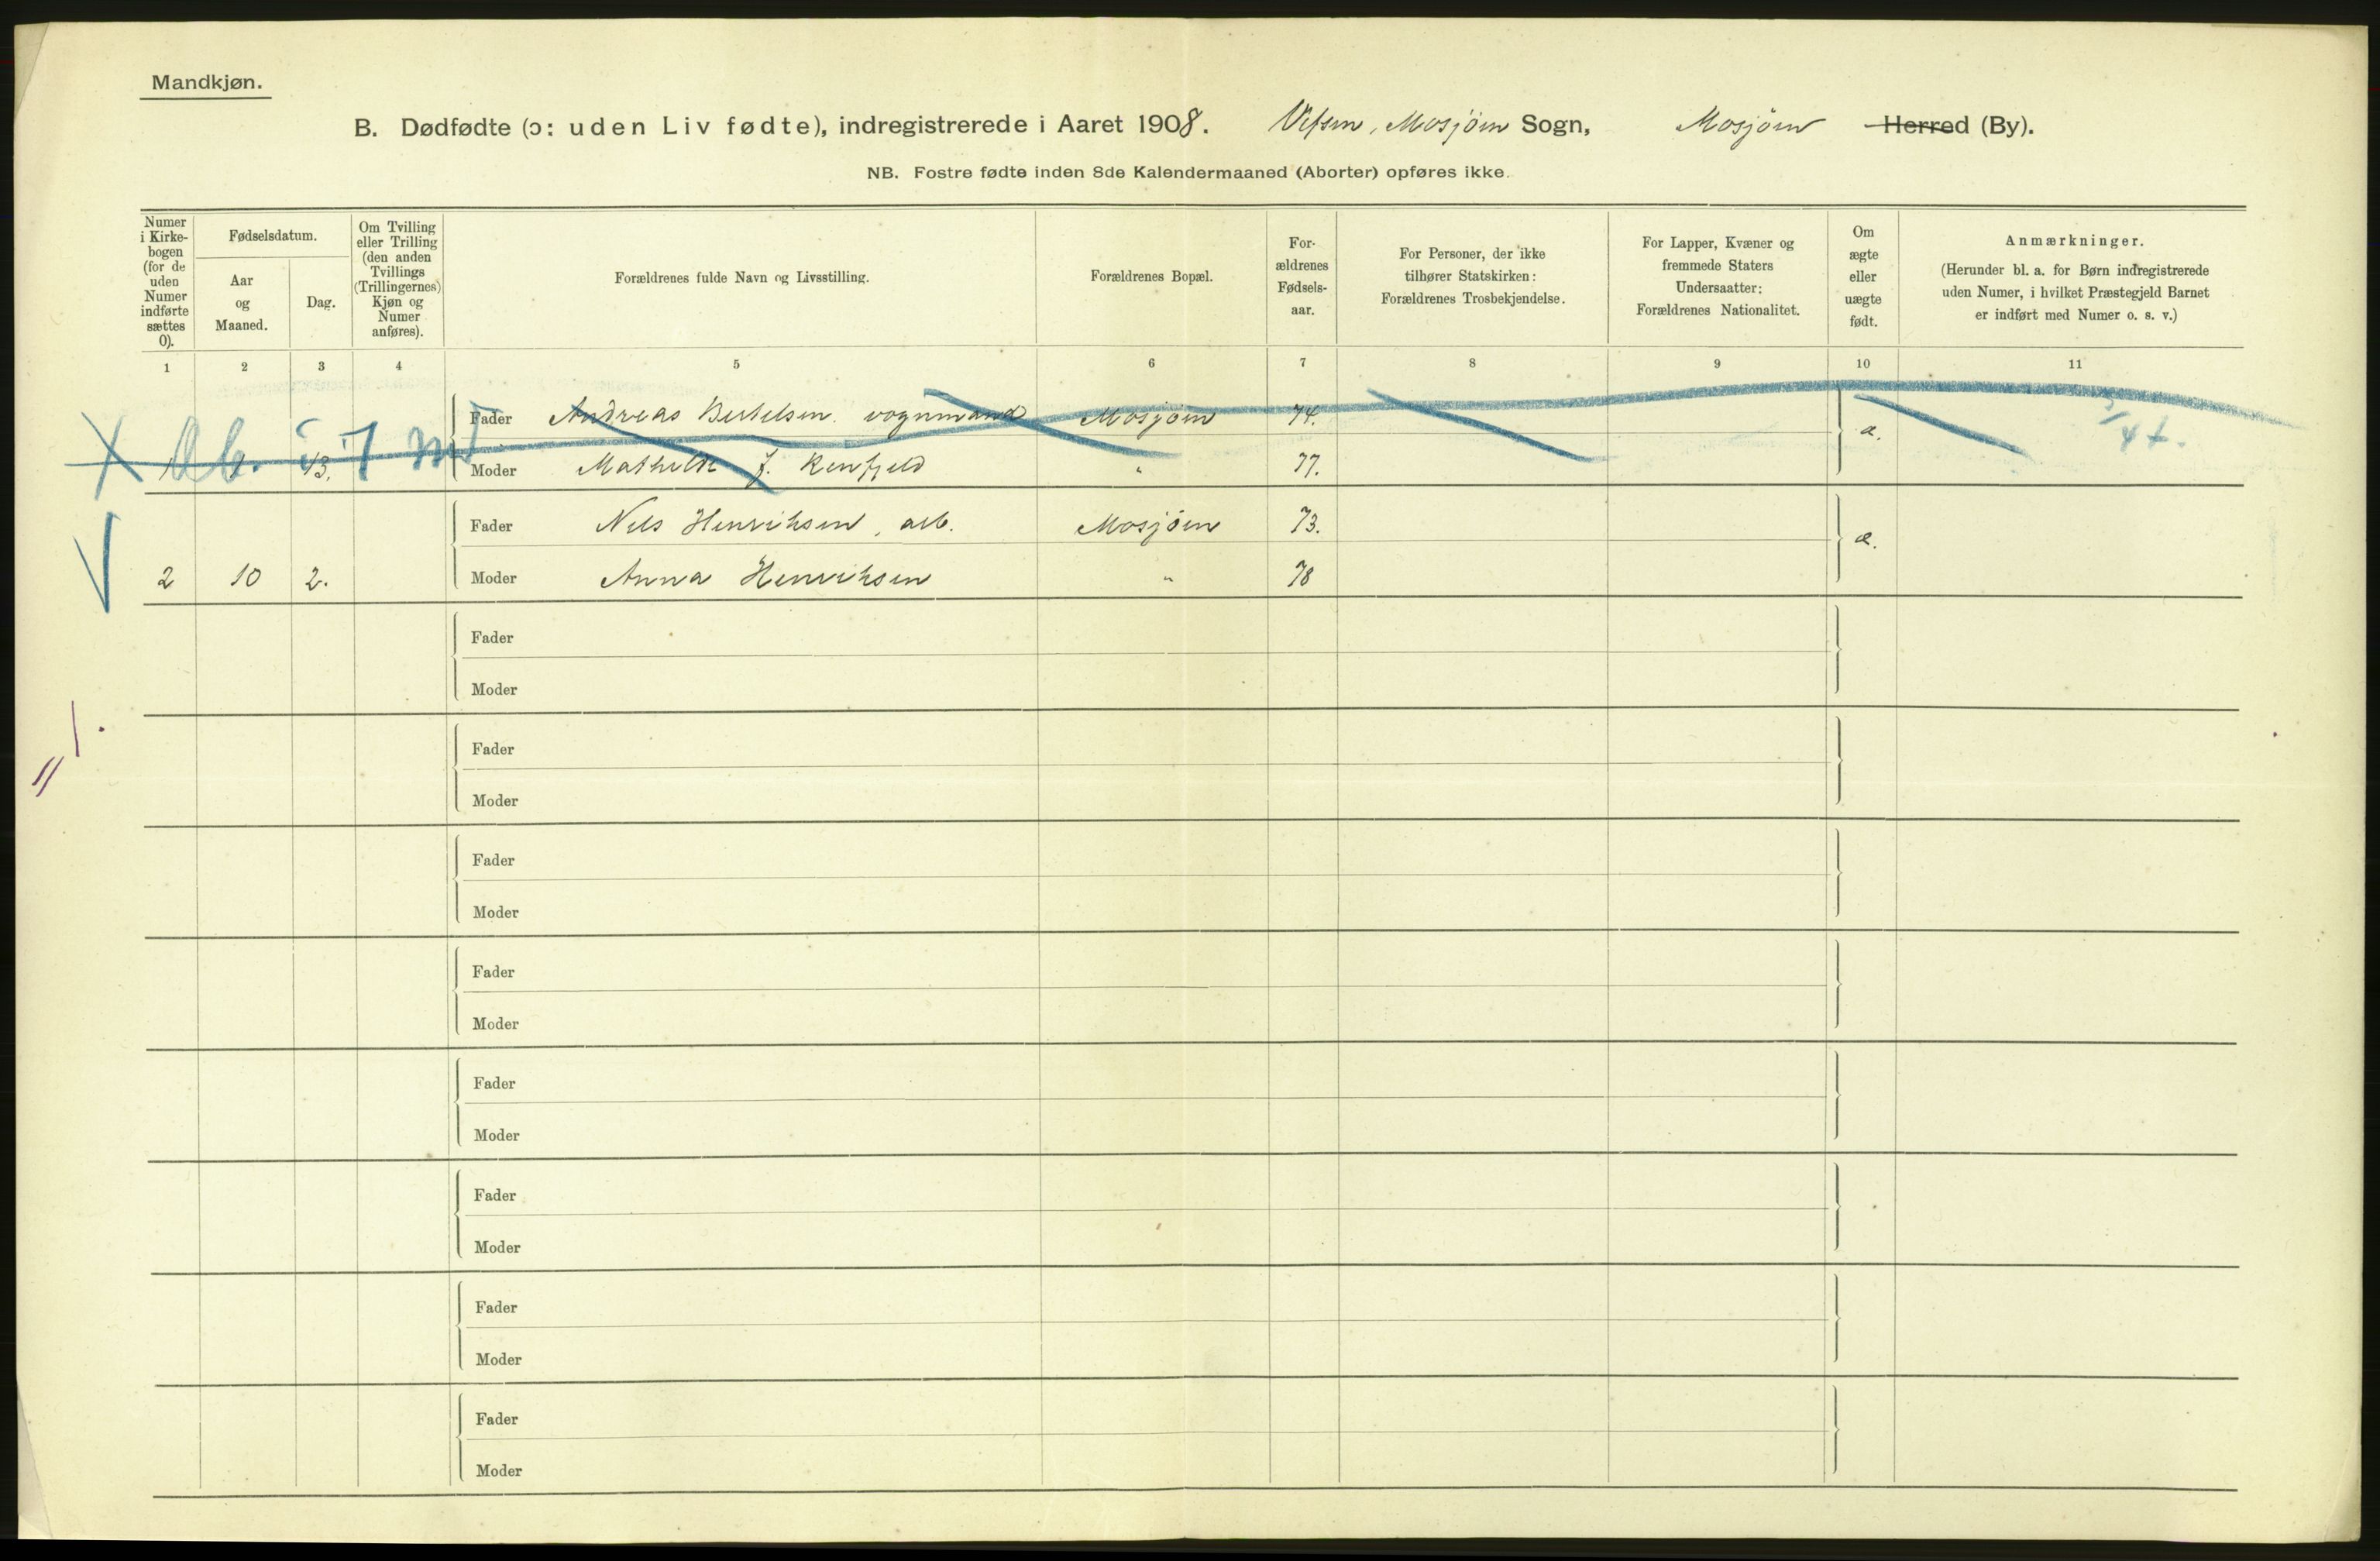 Mandkjøn.
B. Dødfødte (ɔ: uden Liv fødte), indregistrerede i Aaret 1908. Vefsen, Mosjøen Sogn, Mosjøen Herred (By).
NB. Fostre fødte inden 8de Kalendermaaned (Aborter) opføres ikke.
Numer
i Kirke-
bogen
(for de
uden
Numer
indførte
sættes
0).
Fødselsdatum.
Aar
og
Maaned.
Dag.
Om Tvilling
eller Trilling
(den anden
Tvillings
(Trillingernes)
Kjøn og
Numer
anføres).
Forældrenes fulde Navn og Livsstilling.
Forældrenes Bopæl.
For-
ældrenes
Fødsels-
aar.
For Personer, der ikke
tilhører Statskirken:
Forældrenes Trosbekjendelse.
For Lapper, Kvæner og
fremmede Staters
Undersaatter:
Forældrenes Nationalitet.
Om
ægte
eller
uægte
født.
Anmærkninger.
(Herunder bl. a. for Børn indregistrerede
uden Numer, i hvilket Præstegjeld Barnet
er indført med Numer o. s. v.)
1 2 3 4 5 6 7 8 9 10 11
Fader Andreas Bertelsen. vognmand Mosjøen 74. æ.
Ab. i 7 m
1 13. Moder Mathilde J. " 77.
Fader Nils Henriksen, arb. Mosjøen 73. æ.
2 10 2. Moder Anna Henriksen " 78
Fader
Moder
Fader
Moder
Fader
Moder
Fader
Moder
Fader
Moder
Fader
Moder
Fader
Moder
Fader
Moder